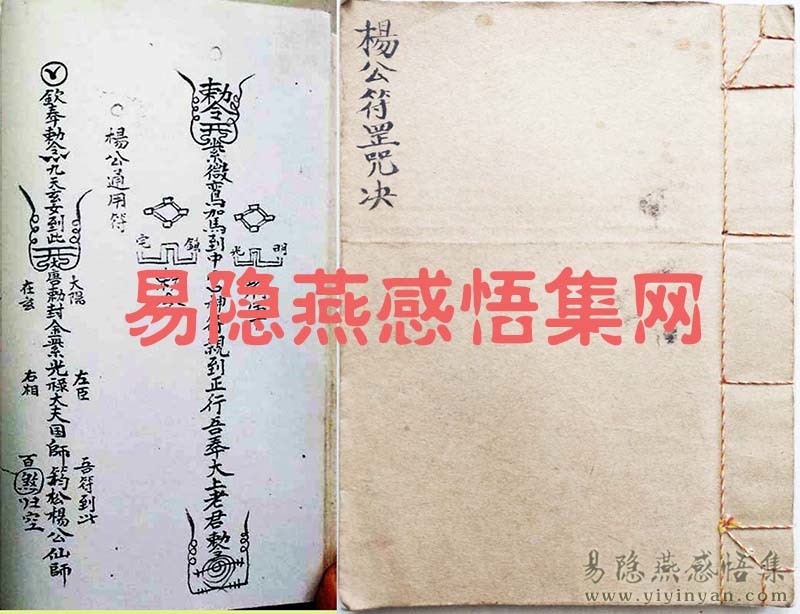 楊公符罡咒决
敕令 紫微鸾駕到中
親到正行吾奉太上老君敕令
明光
鎮宅
楊公通用符
欽奉敕令九天玄女到此
唐敕封金紫光禄大夫国師筠松楊公仙師
太陽
在玄
左臣
右相
吾符到此
百煞归空
易隐燕感悟集网
易隐燕感悟集
www.yiyinyan.com